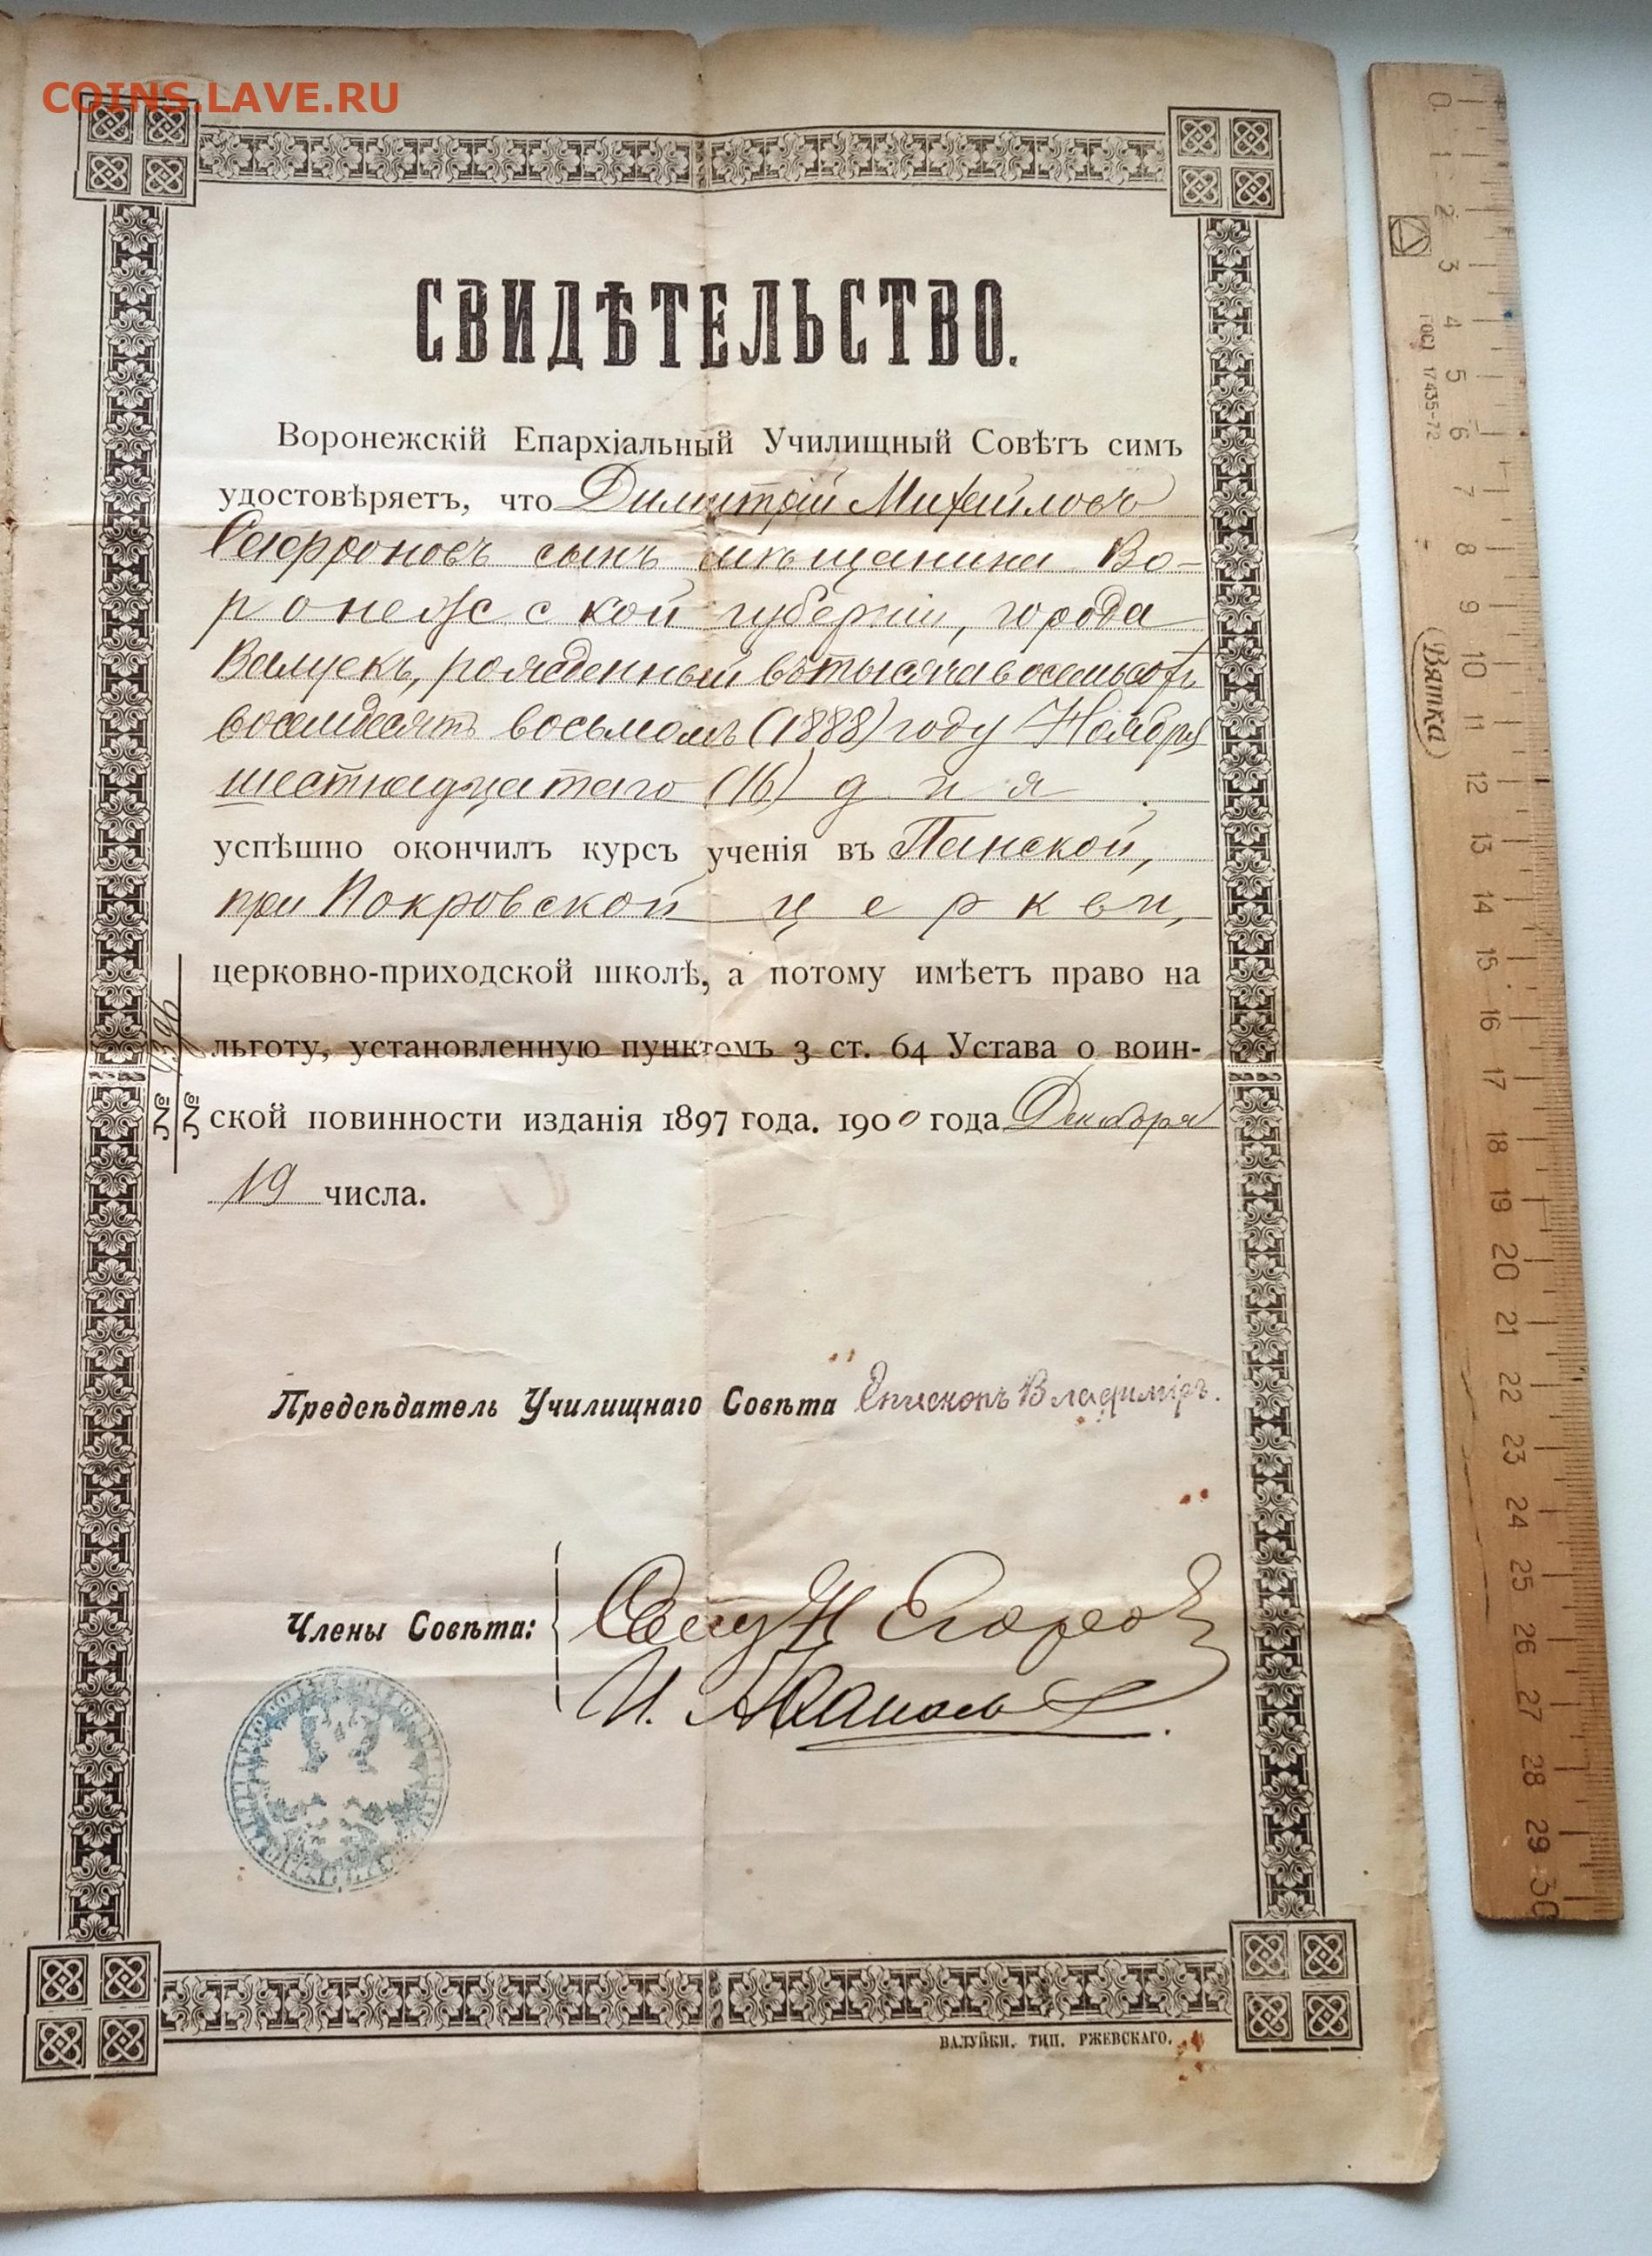 COINS.LAVE.RU
СВИДѢТЕЛЬСТВО.
Воронежскій Епархіальный Училищный Совѣтъ симъ
удостовѣряетъ, что Димитрій Михайловъ
Сафроновъ сынъ мѣщанина Во-
ронежской губерніи, города
Валуекъ, рожденный въ тысяча восемьсотъ
восемдесятъ восьмомъ (1888) году Ноября
шестнадцатаго (16) дня
успѣшно окончилъ курсъ ученія въ Панской,
при Покровской церкви,
церковно-приходской школѣ, а потому имѣетъ право на
льготу, установленную пунктомъ 3 ст. 64 Устава о воин-
ской повинности изданія 1897 года. 1900 года Декабря
19 числа.
№ 4396
№
Предсѣдатель Училищнаго Совѣта Епископъ Владиміръ.
Члены Совѣта:
Егоров
И.
ВАЛУЙКИ. ТИП. РЖЕВСКАГО.
0 1 2 3 4 5 6 7 8 9 10 11 12 13 14 15 16 17 18 19 20 21 22 23 24 25 26 27 28 29 30
ГОСТ 17435-72
Вятка